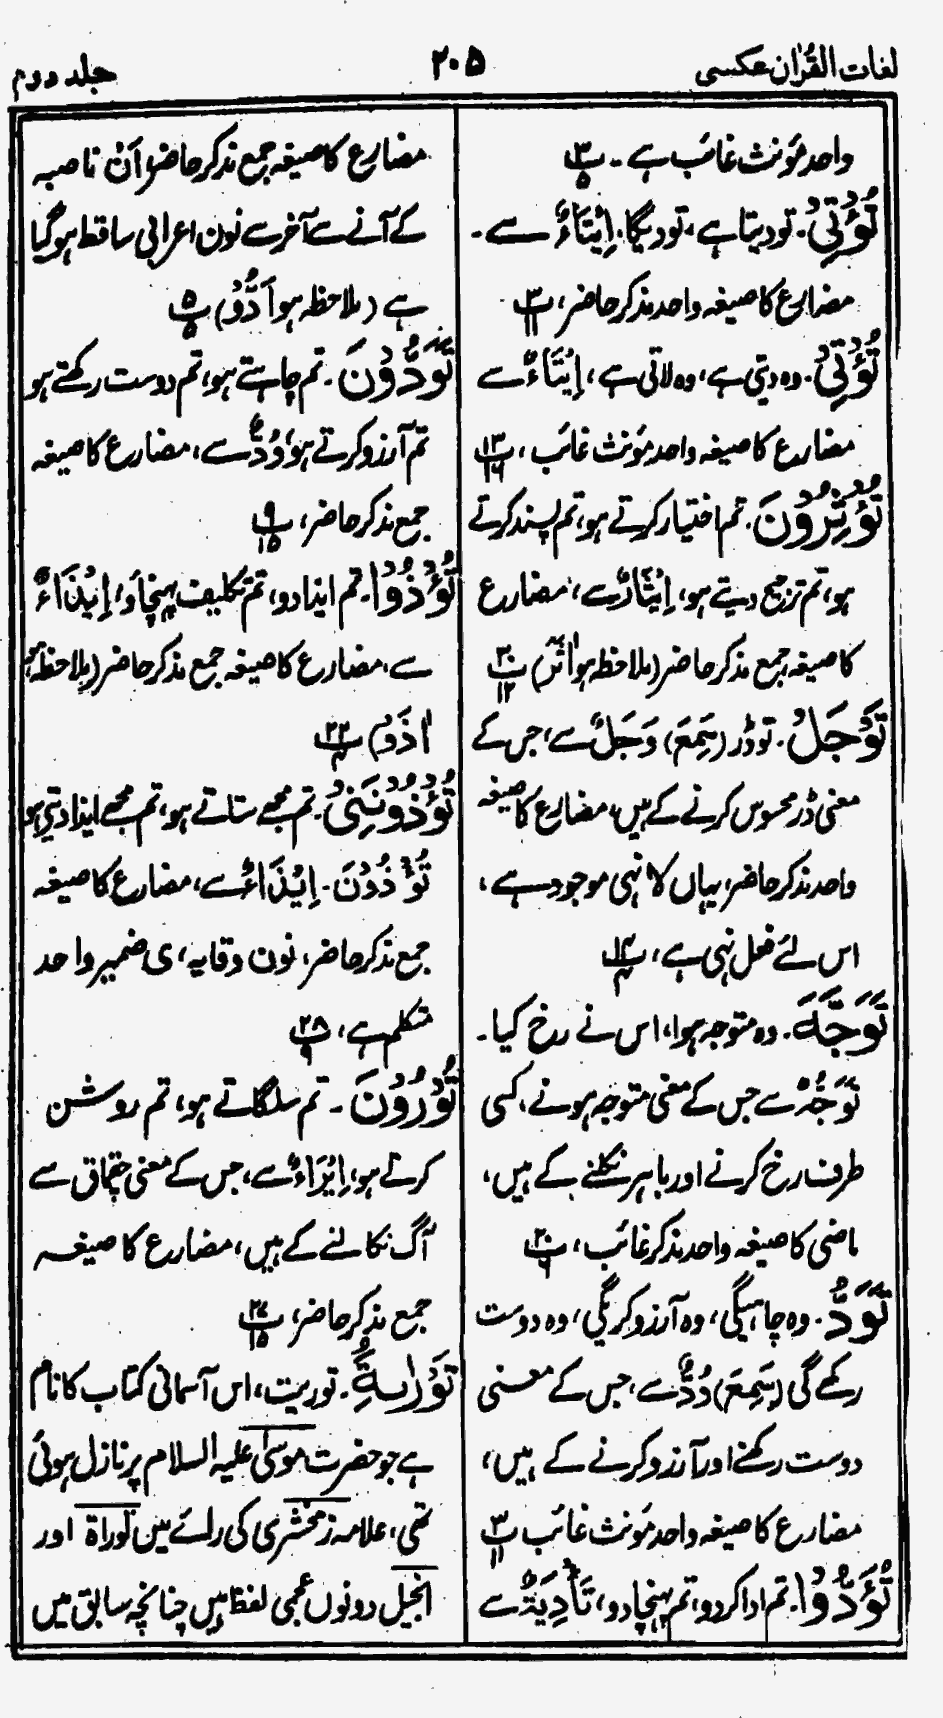 لغات القرآن عکسی
۲۰۵
جلد دوم
واحد مؤنث غائب ہے ۔ پ ۳/۵
تُؤْتِیْ. تو دیتا ہے، تو دیگا. اِیْتَاءٌ سے ۔
مضارع کا صیغہ واحد مذکر حاضر، پ ۳/۱۱
تُؤْتِیْ. وہ دیتی ہے، وہ لاتی ہے، اِیْتَاءٌ سے
مضارع کا صیغہ واحد مؤنث غائب، پ ۱۳/۱۶
تُؤْثِرُوْنَ. تم اختیار کرتے ہو، تم پسند کرتے
ہو، تم ترجیح دیتے ہو، اِیْثَارٌ سے، مضارع
کا صیغہ جمع مذکر حاضر (ملاحظہ ہو اٰثَرَ) پ ۳۰/۱۲
تَوْجَلْ. تو ڈر (سَمِعَ) وَجَلٌ سے، جس کے
معنی ڈر محسوس کرنے کے ہیں، مضارع کا صیغہ
واحد مذکر حاضر، یہاں لا نہی موجود ہے،
اس لئے فعل نہی ہے، پ ۱۴/۴
تَوَجَّہَ. وہ متوجہ ہوا، اس نے رخ کیا۔
تَوَجُّہٌ سے جس کے معنی متوجہ ہونے، کسی
طرف رخ کرنے اور باہر نکلنے کے ہیں،
ماضی کا صیغہ واحد مذکر غائب، پ ۲۰/۶
تَوَدُّ. وہ چاہیگی، وہ آرزو کریگی، وہ دوست
رکھے گی (سَمِعَ) وُدٌّ سے، جس کے معنی
دوست رکھنے اور آرزو کرنے کے ہیں،
مضارع کا صیغہ واحد مؤنث غائب پ ۳/۱۱
تُؤَدُّوْا. تم ادا کردو، تم پہنچا دو، تَأْدِیَۃٌ سے
مضارع کا صیغہ جمع مذکر حاضر، اَنْ ناصبہ
کے آنے سے آخر سے نون اعرابی ساقط ہو گیا
ہے (ملاحظہ ہو اَدُّوْ) پ ۵/۵
تَوَدُّوْنَ. تم چاہتے ہو، تم دوست رکھتے ہو
تم آرزو کرتے ہو، وُدٌّ سے، مضارع کا صیغہ
جمع مذکر حاضر، پ ۹/۱۵
تُؤْذُوْا. تم ایذا دو، تم تکلیف پہنچاؤ، اِیْذَاءٌ
سے، مضارع کا صیغہ جمع مذکر حاضر (ملاحظہ ہو
اٰذَوْ) پ ۲۲/۴
تُؤْذُوْنَنِیْ. تم مجھے ستاتے ہو، تم مجھے ایذا دیتے ہو
تُؤْذُوْنَ. اِیْذَاءٌ سے، مضارع کا صیغہ
جمع مذکر حاضر، نون وقایہ، ی ضمیر واحد
متکلم ہے، پ ۲۸/۹
تُوْرُوْنَ۔ تم سلگاتے ہو، تم روشن
کرتے ہو، اِیْرَاءٌ سے، جس کے معنی چقماق سے
آگ نکالنے کے ہیں، مضارع کا صیغہ
جمع مذکر حاضر، پ ۲۷/۱۵
تَوْرٰىۃٌ. توریت، اس آسمانی کتاب کا نام
ہے جو حضرت موسٰی علیہ السلام پر نازل ہوئی
تھی، علامہ زمخشری کی رائے میں توراۃ اور
انجیل دونوں عجمی لفظ ہیں چنانچہ سابق میں